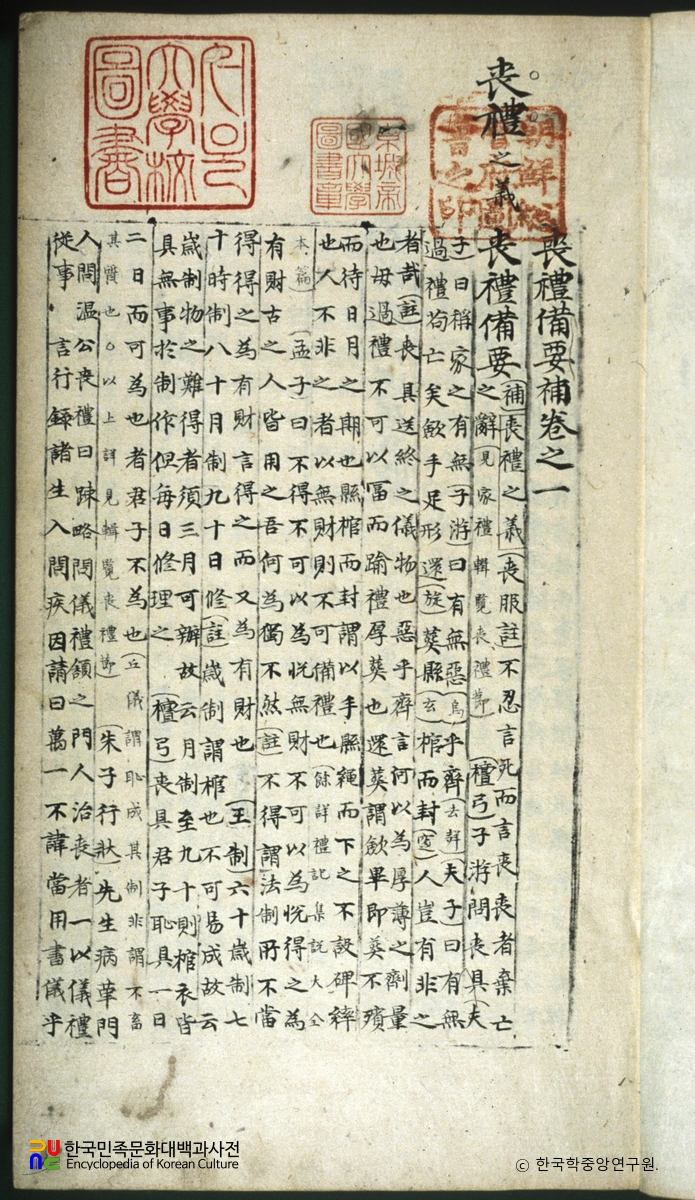 喪禮之義
喪禮備要補卷之一
喪禮備要
補喪禮之義(喪服註)不忍言死而言喪喪者棄亡
之辭(見家禮輯覽喪禮節)(檀弓)子游問喪具(夫
子)曰稱家之有無(子游)曰有無惡(烏)乎齊(去聲)(夫子)曰有無
過禮苟亡矣斂手足形還(旋)葬縣(玄)棺而封(窆)人豈有非之
者哉(註)喪具送終之儀物也惡乎齊言何以為厚薄之劑量
也毋過禮不可以富而踰禮厚葬也還葬謂斂畢即葬不殯
而待日月之期也縣棺而封謂以手縣繩而下之不設碑繂
也人不非之者以無財則不可備禮也(餘詳禮記集說大全
本篇)(孟子)曰不得不可以為悅無財不可以為悅得之為
有財古之人皆用之吾何為獨不然(註)不得謂法制所不當
得得之為有財言得之而又為有財也(王制)六十歲制七
十時制八十月制九十日修(註)歲制謂棺也不可易成故云
歲制物之難得者須三月可辦故云月制至九十則棺衣皆
具無事於制作但每日修理之(檀弓)喪具君子恥具一日
二日而可為也者君子不為也(丘儀謂恥成其制非謂不畜
其實也○以上詳見輯覽喪禮節)(朱子行狀)先生病革門
人問溫公喪禮曰疎略問儀禮頷之門人治喪者一以儀禮
從事 言行録諸生入問疾因請曰萬一不諱當用書儀乎
朝鮮總督府圖書之印
京城帝國大學圖書章
서울大學校圖書
한국민족문화대백과사전
Encyclopedia of Korean Culture
© 한국학중앙연구원.